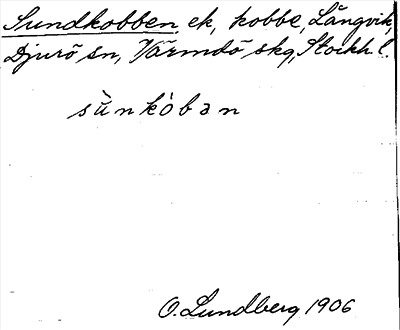 Sundkobben, ek, kobbe, Långvik,
Djurö sn, Värmdö skg, Stockh l.
sùnkòban
O. Lundberg 1906